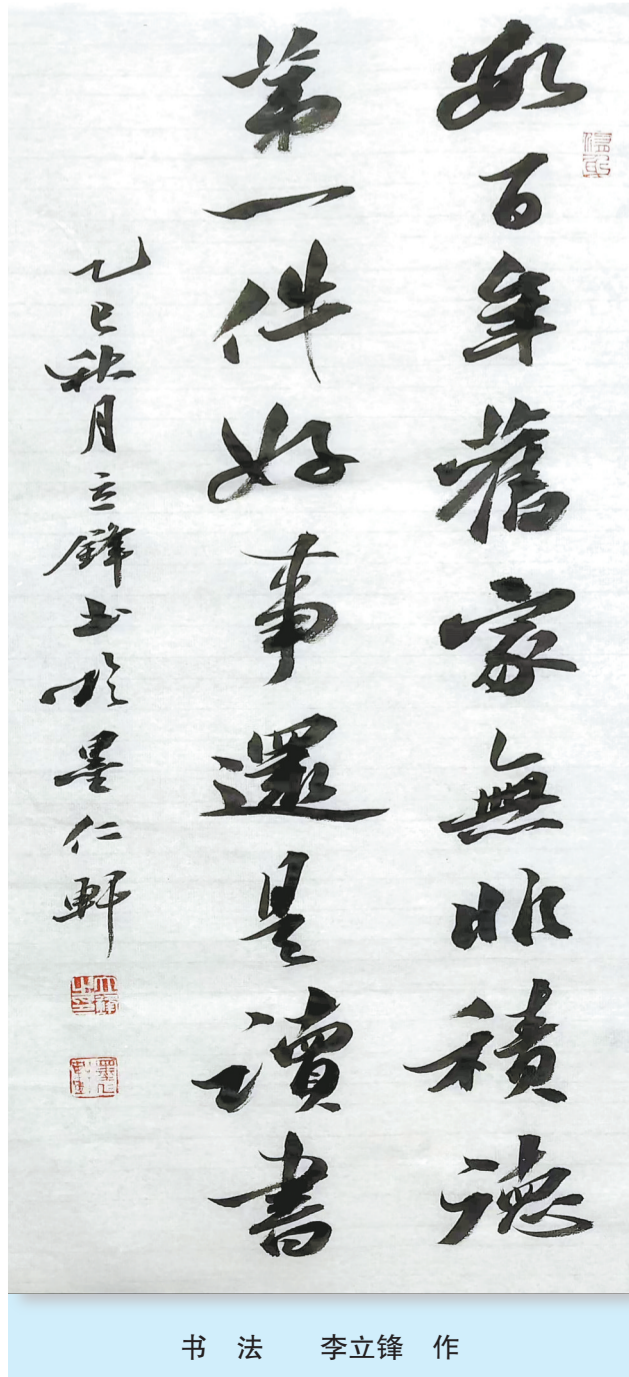 數百年舊家無非積德
第一件好事還是讀書
乙巳秋月立鋒书於墨仁軒
书 法 李立锋 作